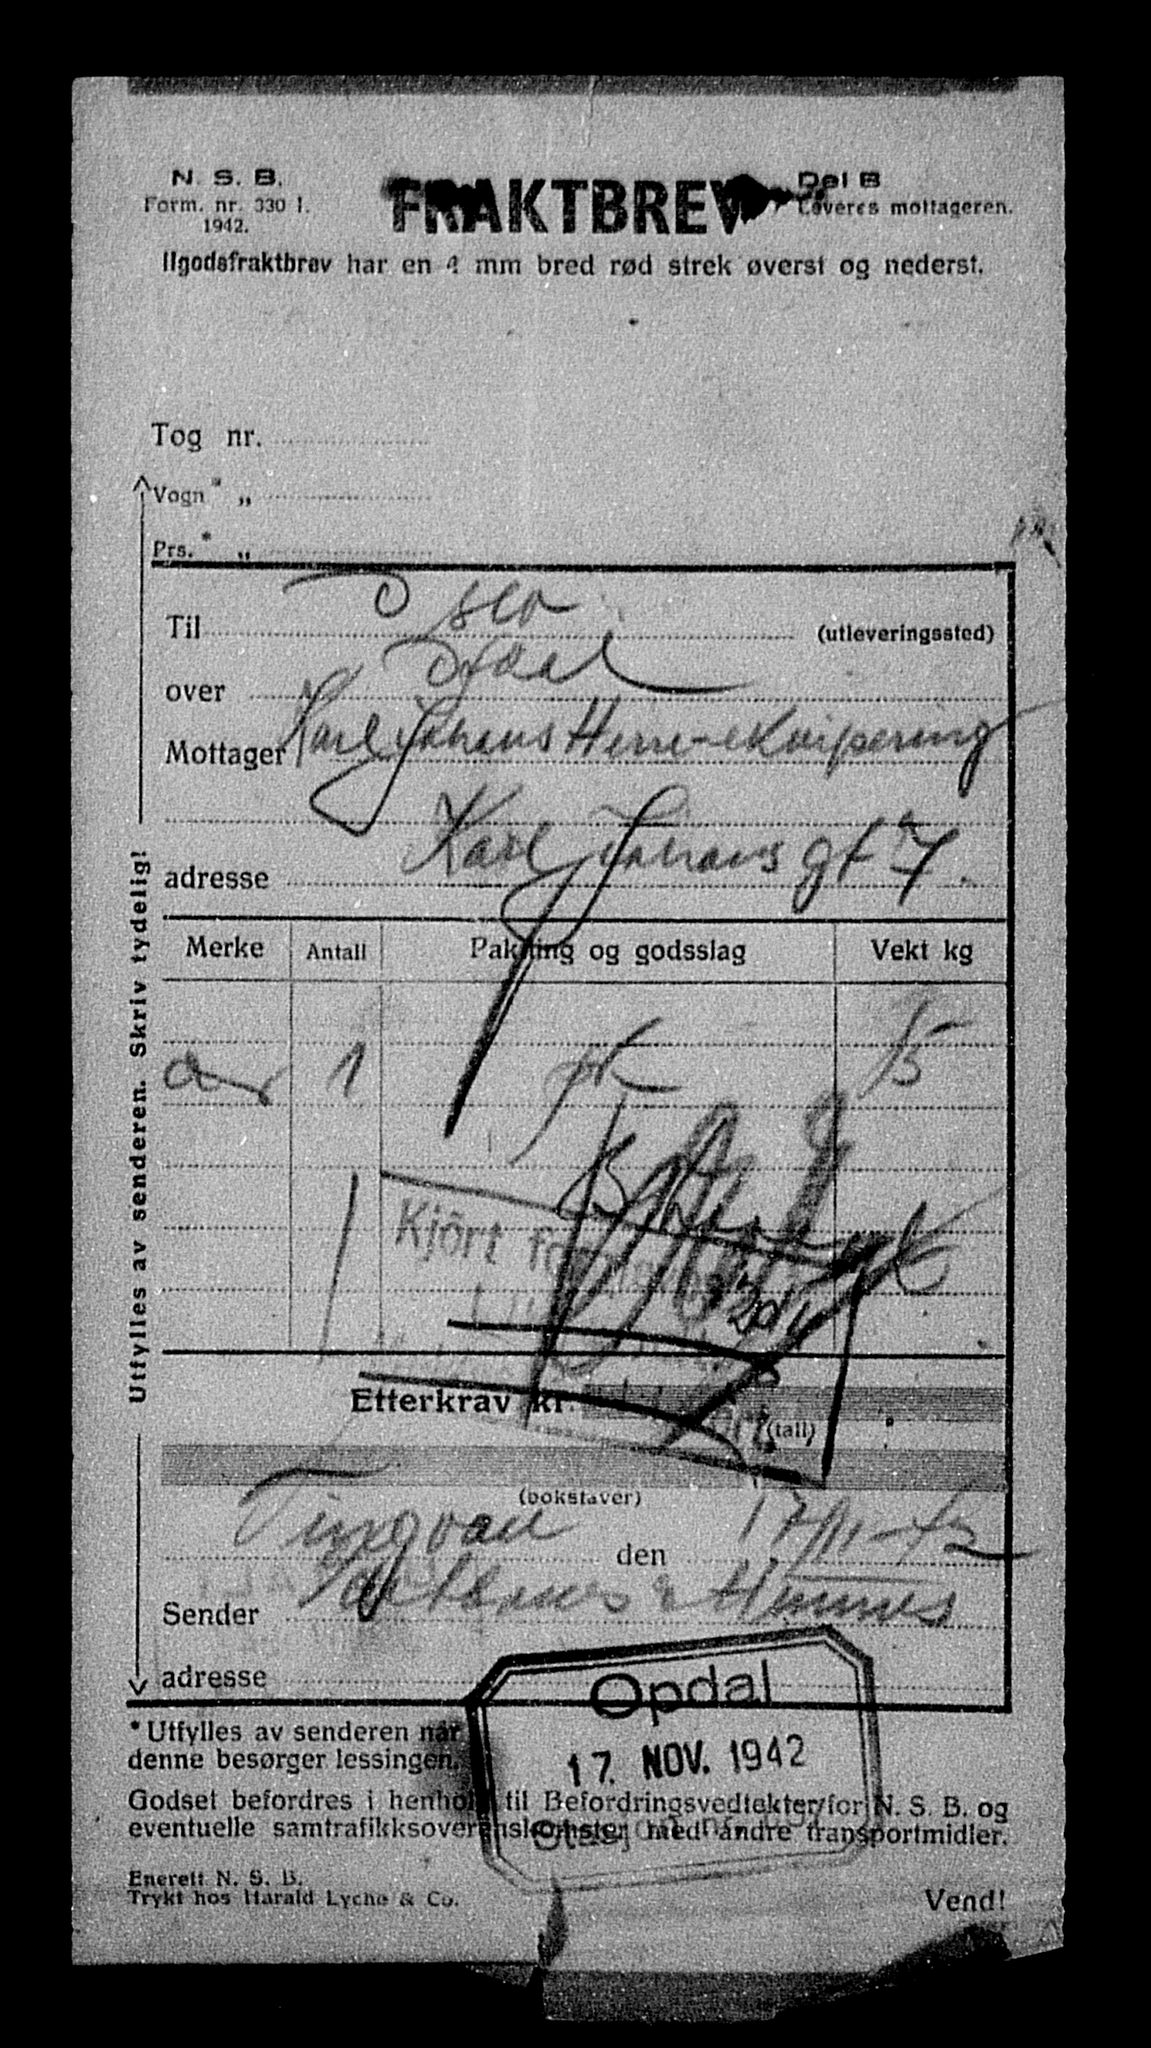 N. S. B.
Form. nr. 330 1.
1942.
FRAKTBREV
Del B
Leveres mottageren.
Ilgodsfraktbrev har en 4 mm bred rød strek øverst og nederst.
Tog nr.
Vogn* „
Prs.* „
Til Oslo (utleveringssted)
over Opdal
Mottager Karl Johans Herre-ekvipering
adresse Karl Johans gt 7.
Merke Antall Pakning og godsslag Vekt kg
1 pk 15
Kjört
Etterkrav kr. (tall)
(bokstaver)
Tingvoll den 17/11-42
Sender
adresse
Opdal
17. NOV. 1942
Utfylles av senderen. Skriv tydelig!
*Utfylles av senderen når
denne besørger lessingen.
Godset befordres i henhold til Befordringsvedtekter for N. S. B. og
eventuelle samtrafikksoverenskomster med andre transportmidler.
Enerett N. S. B.
Trykt hos Harald Lyche & Co.
Vend!